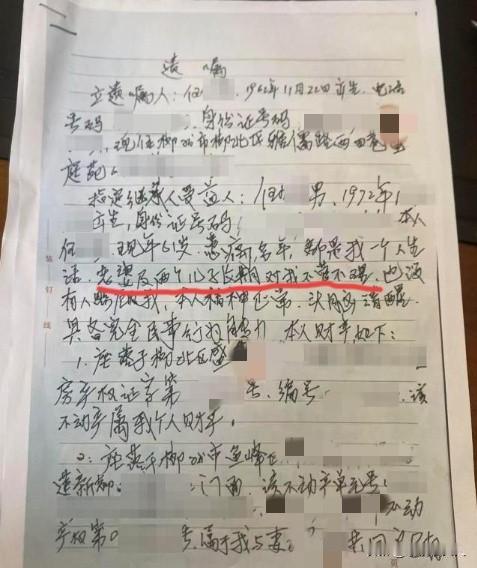 遗嘱
立遗嘱人：任 1962年11月22日出生，电话
号码 身份证号码
现住柳州市柳北区雅儒路西
庭苑
指定继承人受益人：任 男，1972年
出生，身份证号码 本人
任 现年61岁，患病多年，都是我一个人生
活，老婆及两个儿子长期对我不管不理，也没
有人照顾我，本人精神正常，头脑清醒，
具备完全民事行为能力 本人财产如下：
1、座落于柳北区
房产权证字第 号，编号 该
不动产属我个人财产。
2、座落于柳州市鱼峰区
造新柳 门面，该不动产单元号
不动
产权第0 号属于我与妻 共同
装订线